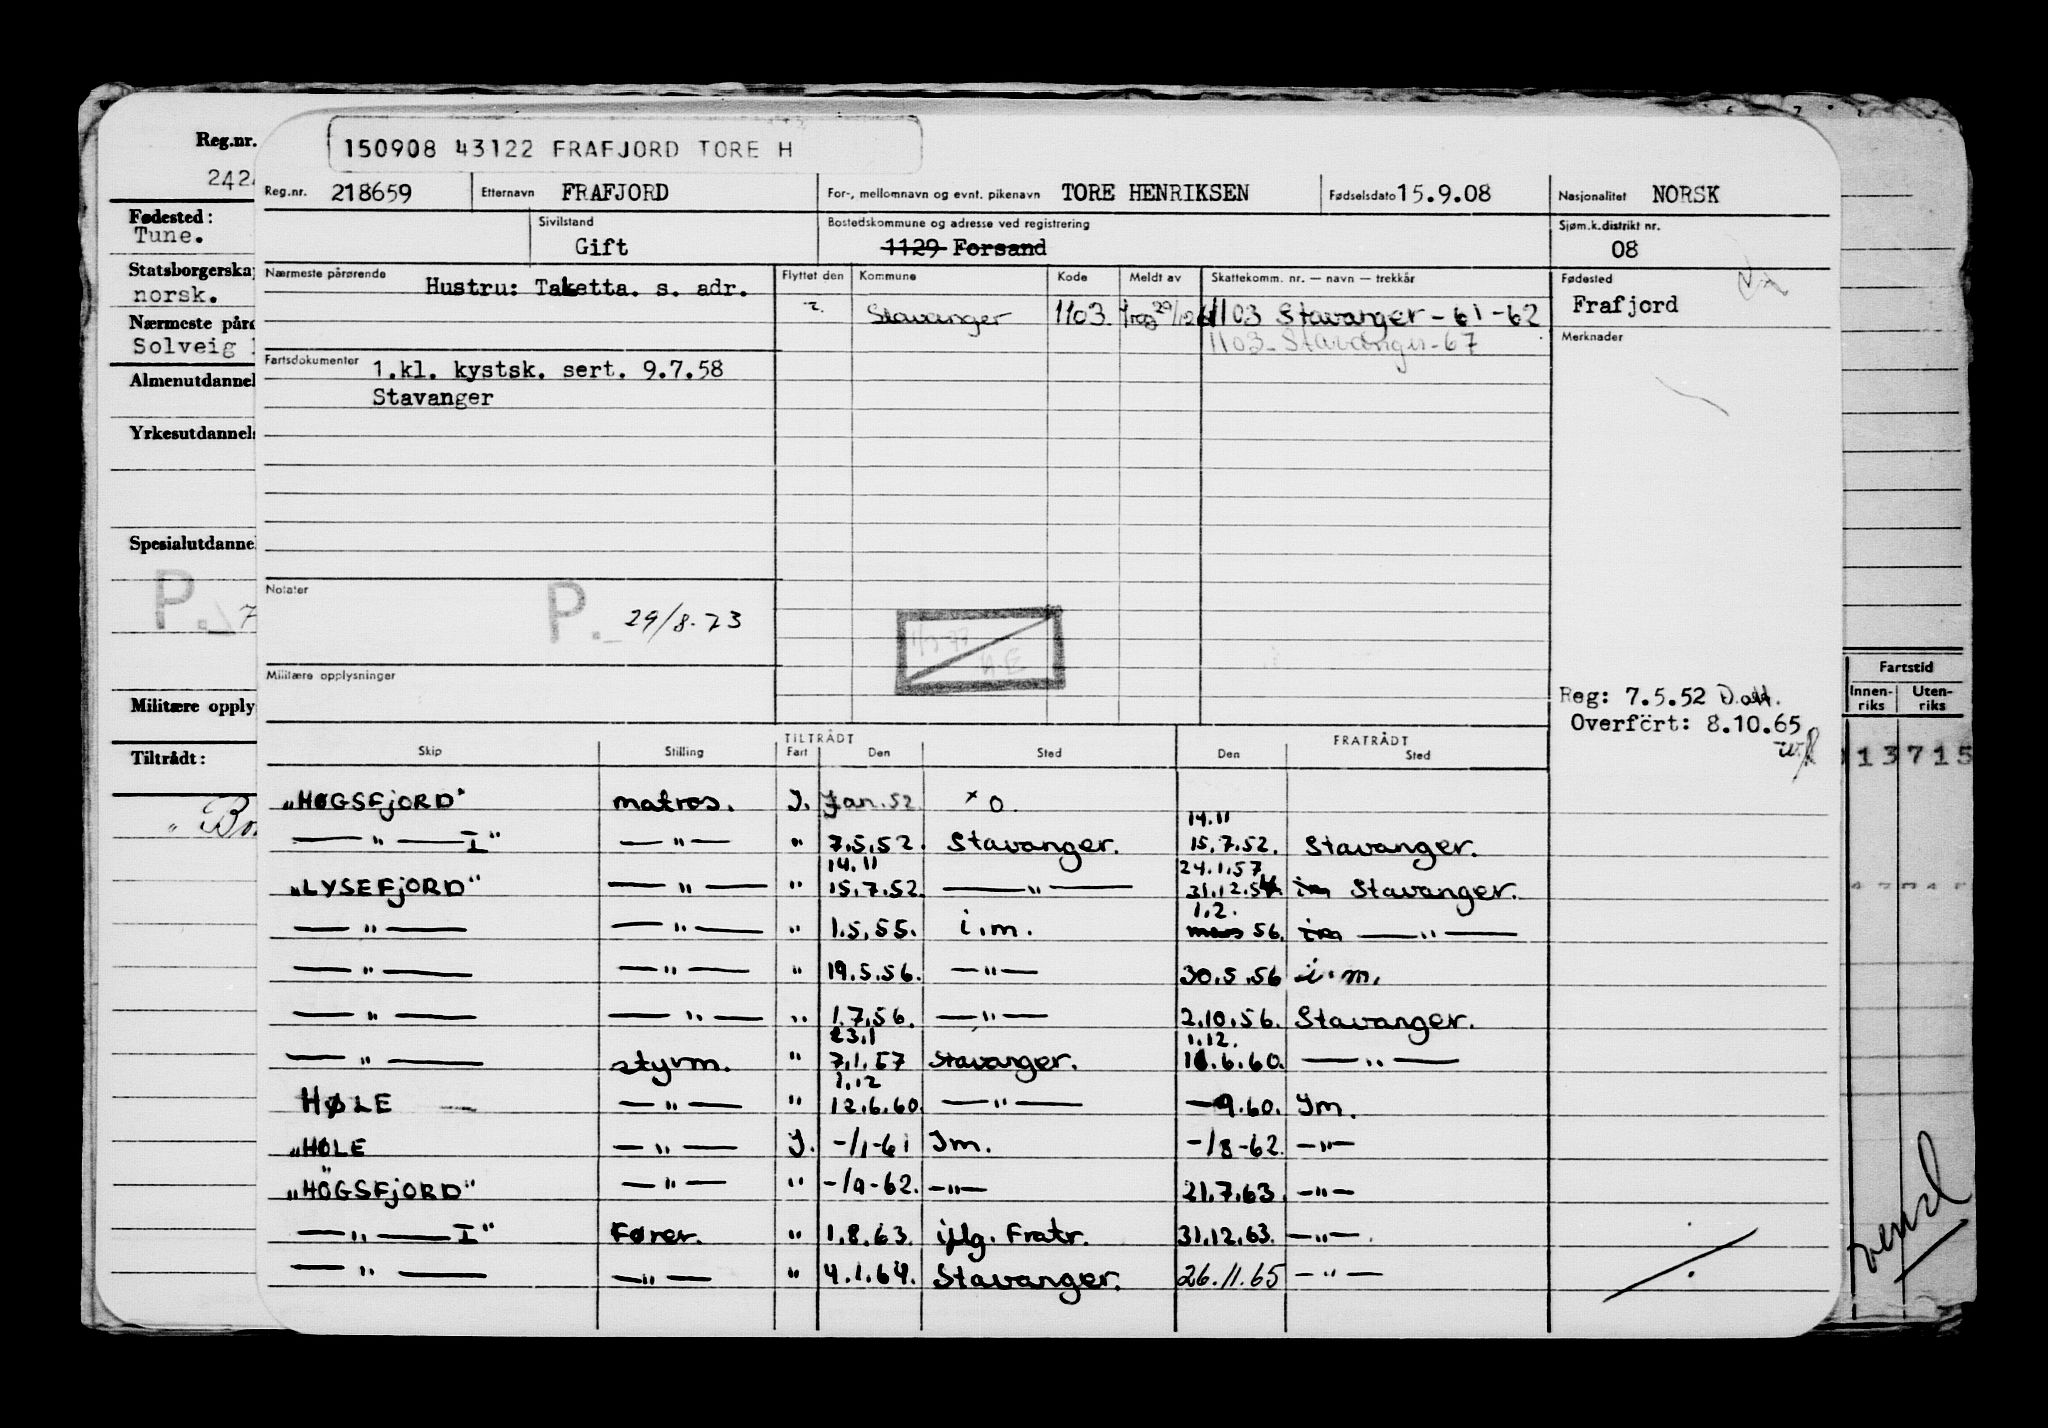 150908 43122 FRAFJORD TORE H
Reg.nr. 218659 Etternavn FRAFJORD For-, mellomnavn og evnt. pikenavn TORE HENRIKSEN Fødselsdato 15.9.08 Nasjonalitet NORSK
Sivilstand Gift Bostedskommune og adresse ved registrering 1129 Forsand Sjøm.k.distrikt nr. 08
Nærmeste pårørende Hustru: Taletta. s. adr. Flyttet den Kommune Kode Meldt av Skattekomm. nr. — navn — trekkår Fødested Frafjord
? Stavanger 1103 1103 Stavanger - 61-62
1103 - Stavanger - 67
Merknader
Fartsdokumenter 1.kl. kystsk. sert. 9.7.58
Stavanger
Notater P. 29/8.73
Militære opplysninger
Reg: 7.5.52
Overført: 8.10.65
TILTRÅDT FRATRÅDT
Skip Stilling Fart Den Sted Den Sted
"HØGSFJORD" matros. J. Jan.52 x o.
14.11
— " — I" — " — " 7.5.52. Stavanger. 15.7.52. Stavanger.
14.11 24.1.57
"LYSEFJORD" — " — " 15.7.52. — " — 31.12.54. im Stavanger.
1.2.
— " — — " — " 1.5.55. i.m. mars 56. im — " —
— " — — " — " 19.5.56. — " — 30.5.56 i.m.
— " — — " — " 1.7.56. — " — 2.10.56. Stavanger.
23.1 1.12.
— " — styrm. " 7.1.57 Stavanger. 11.6.60. — " —
1.12
HØLE — " — " 12.6.60. — " — -9.60. Im.
"HØLE — " — J. -/1-61 Im. -/8-62. — " —
"HÖGSFJORD" — " — " -/9-62. — " — 21.7.63. — " —
— " — I" Fører. " 1.8.63. iflg. Fratr. 31.12.63. — " —
— " — — " — " 4.1.64. Stavanger. 26.11.65 — " —
Reg.nr.
242
Fødested:
Tune.
Statsborgerska
norsk.
Nærmeste pårø
Solveig
Almenutdannel
Yrkesutdannels
Spesialutdanne
P.
Militære opply
Tiltrådt:
Fartstid
Innen-riks Uten-riks
13715
vend